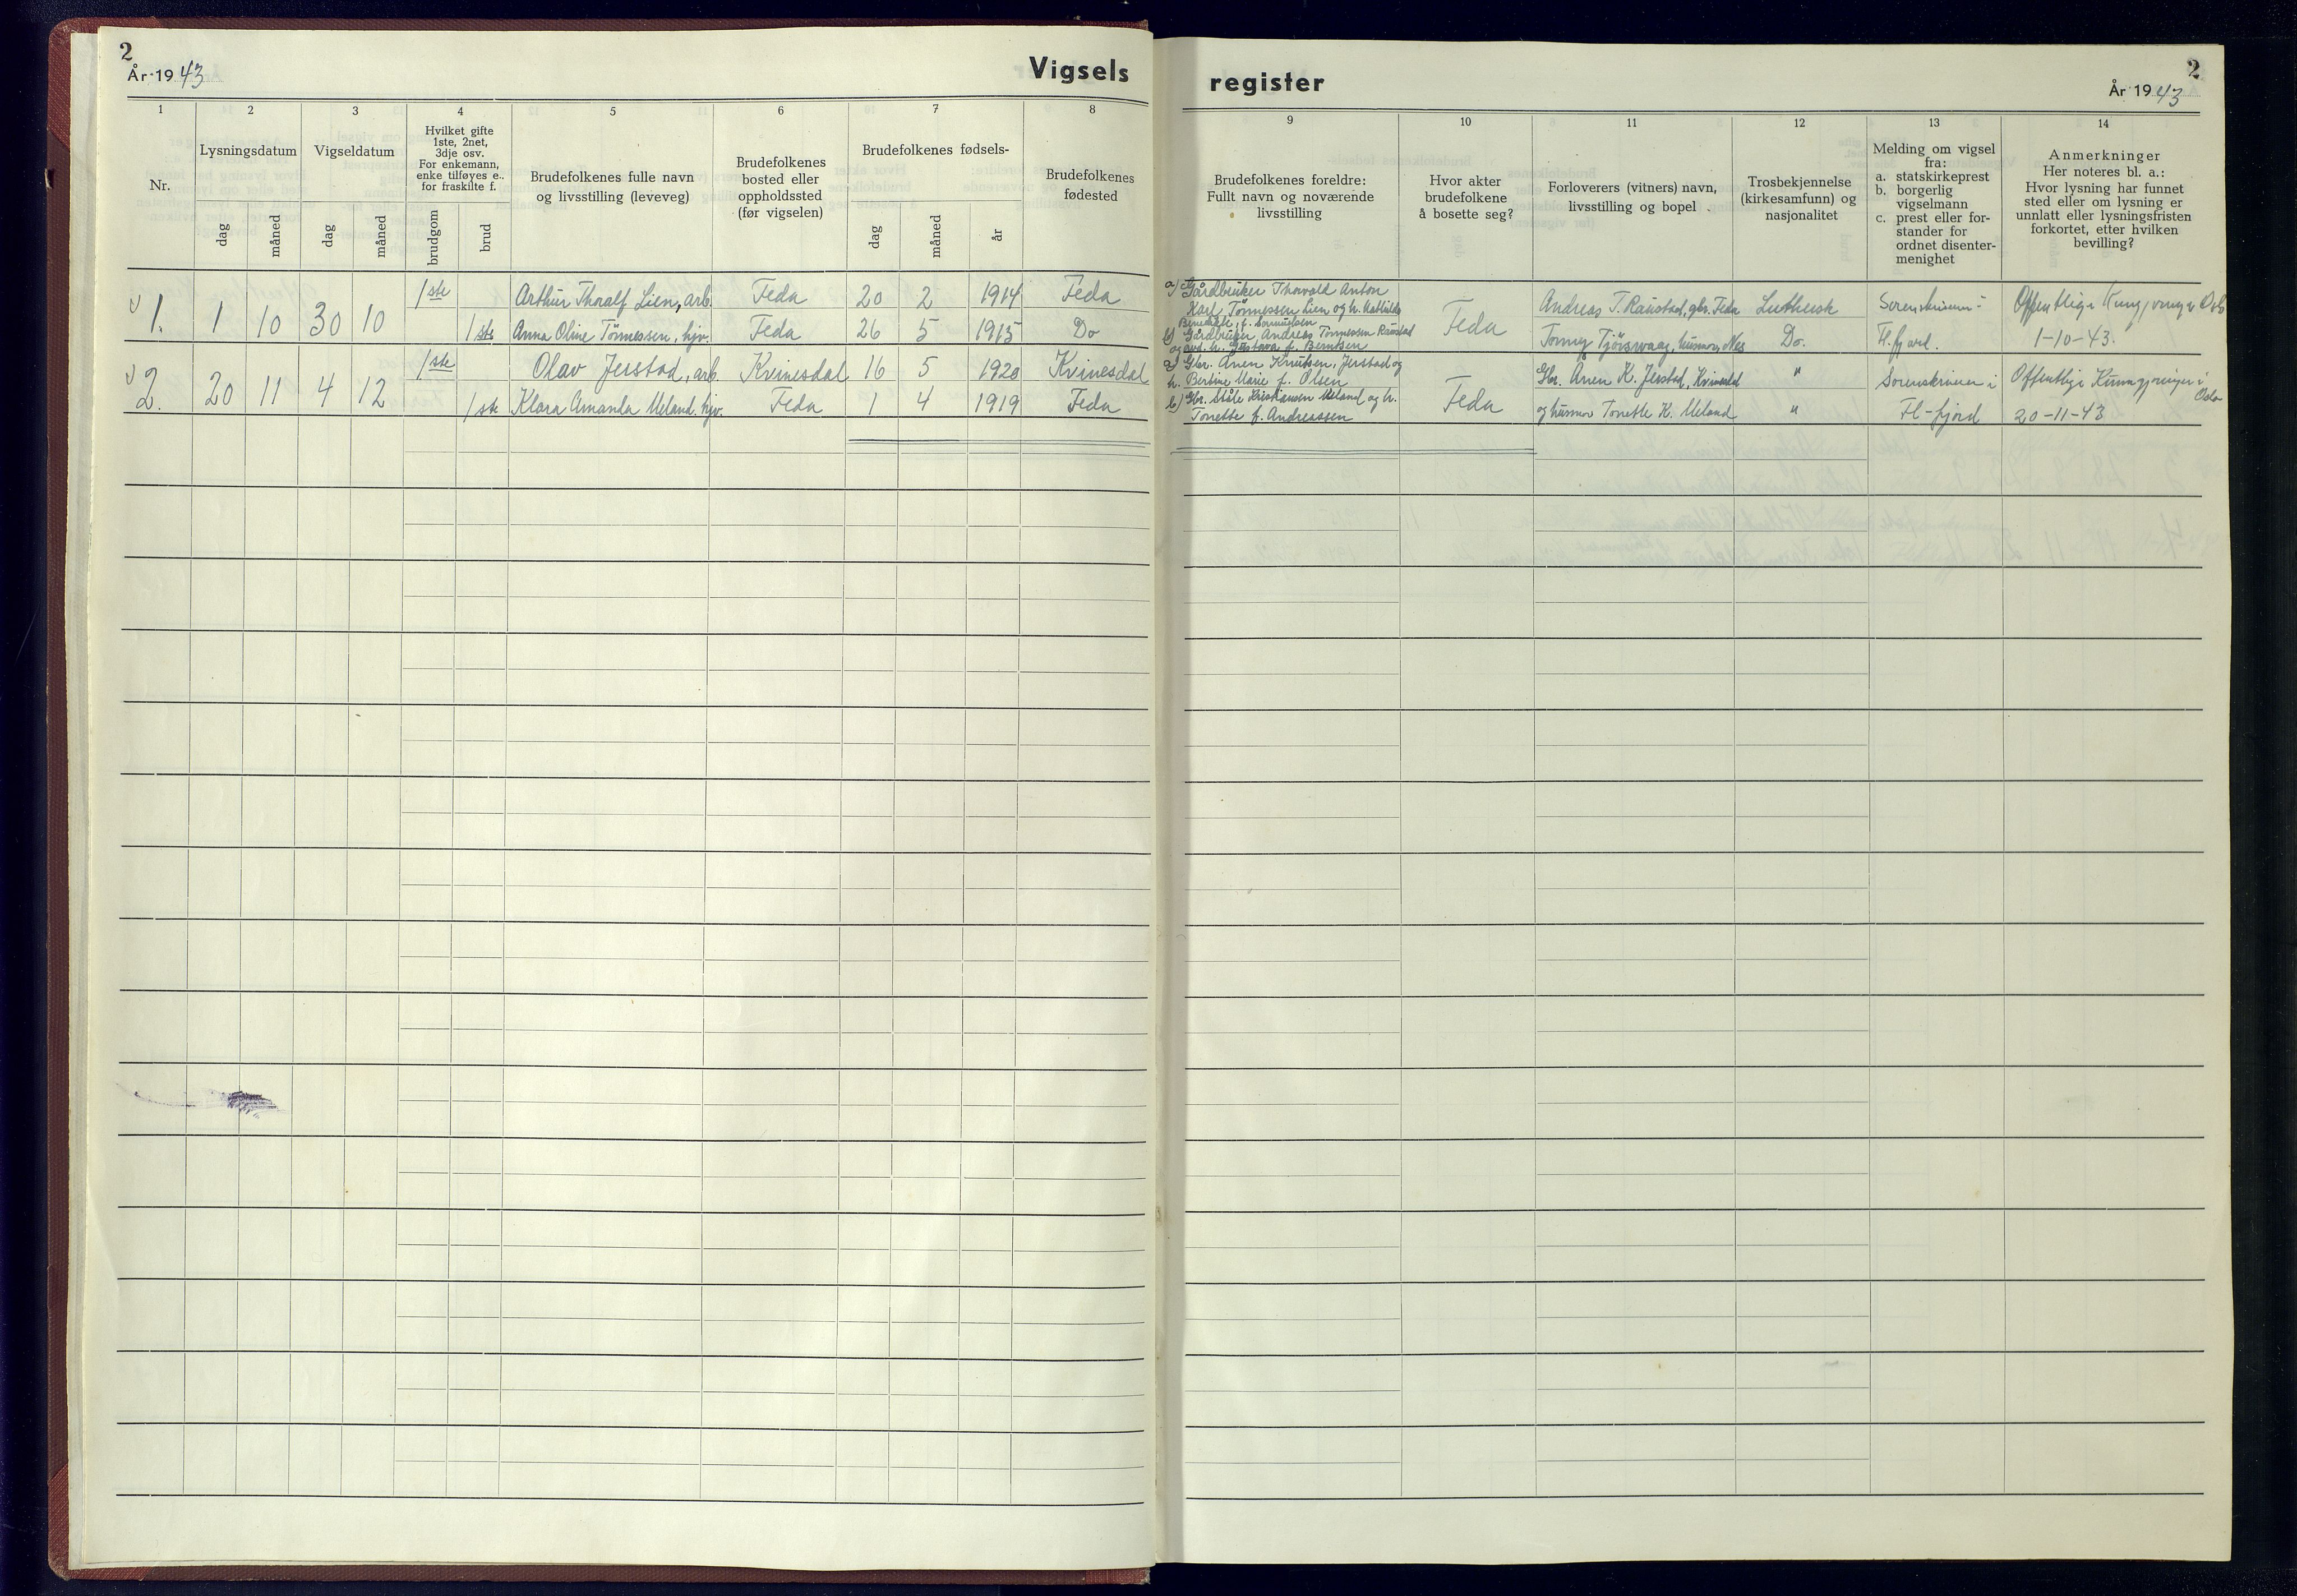 2
År 1943
Vigsels
1
2
3
4
5
6
7
8
Nr.
Lysningsdatum
Vigseldatum
Hvilket gifte
1ste, 2net,
3dje osv.
For enkemann,
enke tilføyes e..
for fraskilte f.
Brudefolkenes fulle navn
og livsstilling (leveveg)
Brudefolkenes
bosted eller
oppholdssted
(før vigselen)
Brudefolkenes fødsels-
Brudefolkenes
fødested
dag
måned
dag
måned
brudgom
brud
dag
måned
år
1. 1 10 30 10
1ste Arthur Thoralf Lien, arb. Feda 20 2 1914 Feda
1ste Anna Oline Tönnessen, hjv. Feda 26 5 1915 Do
2. 20 11 4 12
1ste Olav Jerstad, arb. Kvinesdal 16 5 1920 Kvinesdal
1ste Klara Amanda Meland. hjv. Feda 1 4 1919 Feda
register
2
År 1943
9
10
11
12
13
14
Brudefolkenes foreldre:
Fullt navn og noværende
livsstilling
Hvor akter
brudefolkene
å bosette seg?
Forloverers (vitners) navn,
livsstilling og bopel
Trosbekjennelse
(kirkesamfunn) og
nasjonalitet
Melding om vigsel
fra:
a. statskirkeprest
b. borgerlig
vigselmann
c. prest eller for-
stander for
ordnet disenter-
menighet
Anmerkninger
Her noteres bl. a.:
Hvor lysning har funnet
sted eller om lysning er
unnlatt eller lysningsfristen
forkortet, etter hvilken
bevilling?
a) Gårdbruker Thorvald Anton
Karl Tønnessen Lien og h. Mathilde
Benedikte, f. Samuelsen
b) Gårdbruker Andreas Tønnessen Raustad
og h. Gustava f. Berntsen
Feda
Andreas T. Raustad, gbr. Feda
Tjörsvaag, husmor, Nes
Luthersk
Do.
Sorenskriveren i
Fl.fjord.
Offentlig Oslo
1-10-43.
a) Gbr. Anen Knutsen, Jerstad og
h. Bertine Marie f. Olsen
b) Gbr. Ståle Kristiansen Meland og h.
Tonette f. Andreassen
Feda
Gbr. Anen K. Jerstad, Kvinesdal
og husmor Tonette K. Meland
"
"
Sorenskriveren i
Fl-fjord
Offentlige Kunngjøringer i
Oslo
20-11-43